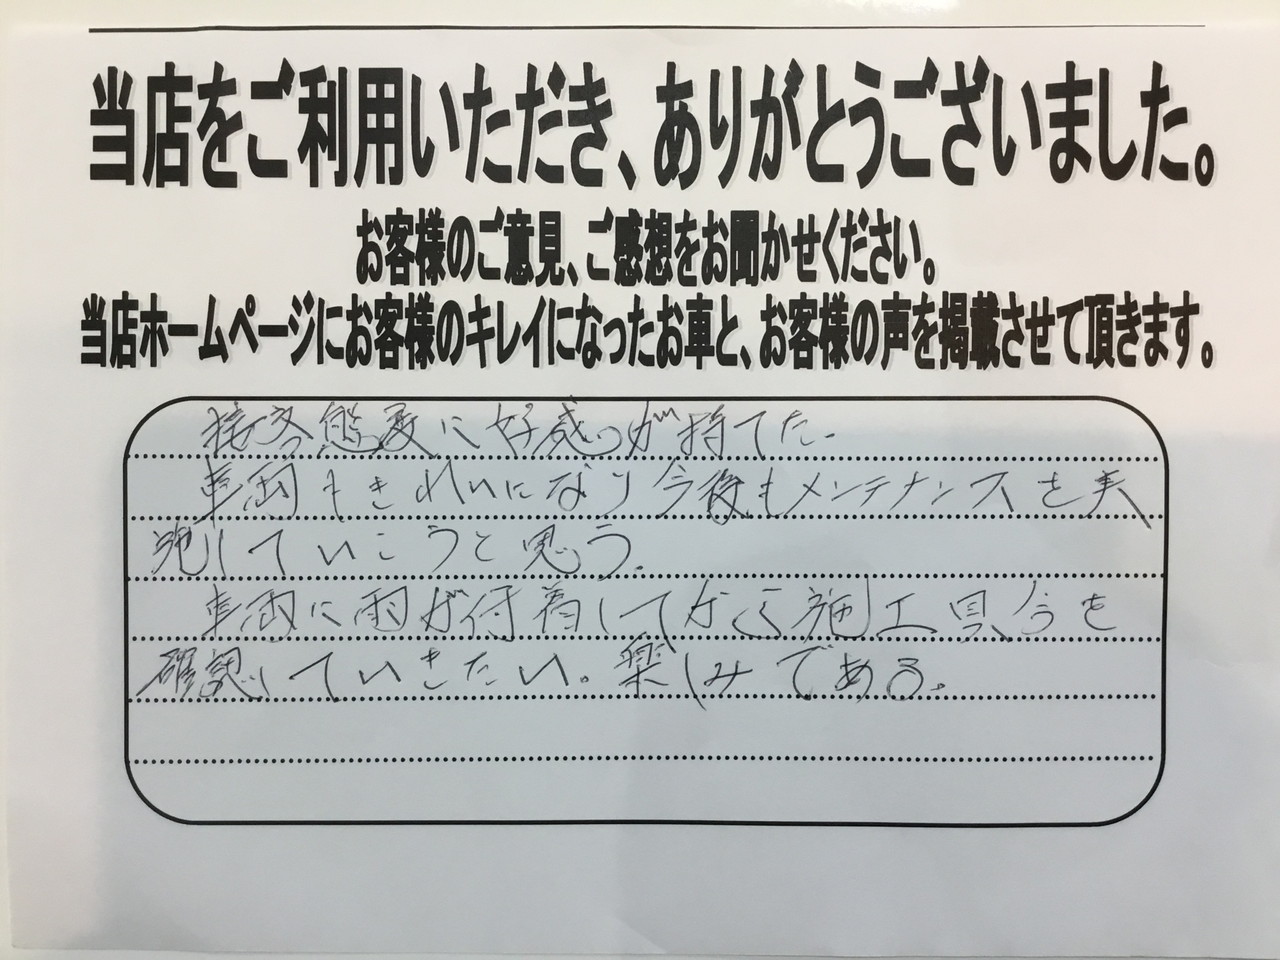 当店をご利用いただき、ありがとうございました。
お客様のご意見、ご感想をお聞かせください。
当店ホームページにお客様のキレイになったお車と、お客様の声を掲載させて頂きます。
接客態度に好感が持てた.
車両もきれいになり今後もメンテナンスを実
施していこうと思う.
車両に雨が付着してから施工具合を
確認していきたい。楽しみである。